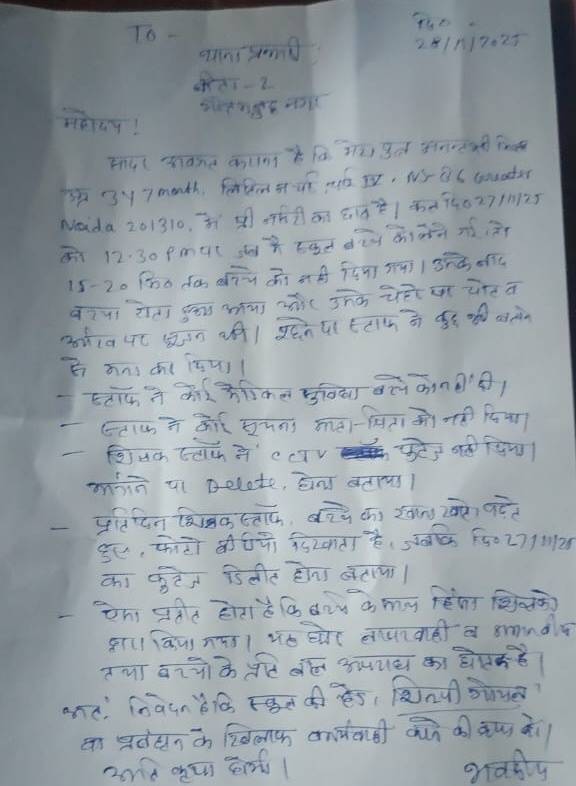 TO -
दि० -
28/11/2025
थाना प्रभारी
बीटा - 2
गौतमबुद्ध नगर
महोदय !
सादर अवगत कराना है कि मेरा पुत्र
उम्र 3 Y 7 month, IV, NS-86 Greater
Noida 201310, में प्री नर्सरी का छात्र है। कल दि० 27/11/25
को 12.30 PM पर जब मैं स्कूल बच्चे को लेने गई, तो
15-20 मि० तक बच्चे को नही दिया गया। उसके बाद
बच्चा रोता हुआ आया और उसके चेहरे पर चोट व
आँख पर सूजन थी। पूछने पर स्टाफ ने कुछ भी बताने
से मना कर दिया।
- स्टॉफ ने कोई मेडिकल सुविधा बच्चे को नहीं दी।
- स्टाफ ने कोई सूचना माता-पिता को नही दिया।
- शिक्षक स्टॉफ ने CCTV फुटेज नही दिया।
मांगने पर Delete, होना बताया।
- प्रतिदिन शिक्षक स्टॉफ, बच्चे का खाना खाते, पढ़ते
हुए, फोटो वीडियो दिखाता है, जबकि दि० 27/11/25
का फुटेज डिलीट होना बताया।
- ऐसा प्रतीत होता है कि बच्चे के साथ हिंसा शिक्षको
द्वारा किया गया। यह घोर लापरवाही व अमानवीय
तथा बच्चो के प्रति बाल अपराध का द्योतक है।
अतः निवेदन है कि स्कूल की हेड, शिल्पी गोयल
व प्रबंधन के खिलाफ कार्यवाही करने की कृपा करें।
अति कृपा होगी। भवदीय